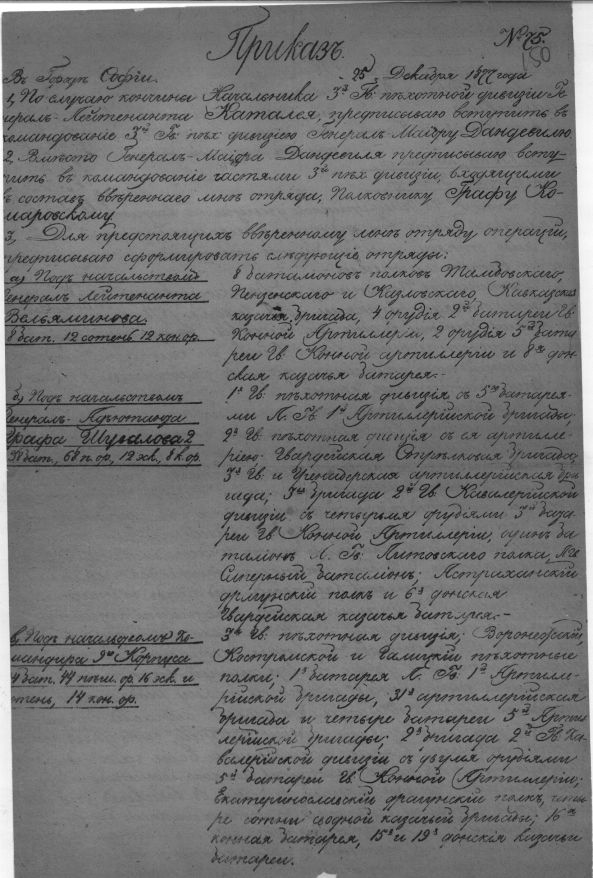 Приказъ.
№ 75.
150
Въ Городѣ Софіи.
25 Декабря 1877 года
1, По случаю кончины Начальника 3й Гв. пѣхотной дивизіи Ге-
нералъ-Лейтенанта Каталея, предписываю вступить въ
командованіе 3й Гв. пѣх дивизіею Генералъ-Маіору Дандевилю.
2, Вмѣсто Генералъ-Маіора Дандевиля предписываю всту-
пить въ командованіе частями 3й пѣх дивизіи, входящими
въ составъ ввѣреннаго мнѣ отряда, Полковнику Графу Ко-
маровскому
3, Для предстоящихъ ввѣренному мнѣ отряду операцій,
предписываю сформировать слѣдующіе отряды:
а) Подъ начальствомъ
Генералъ Лейтенанта
Вельяминова.
8 бат. 12 сотенъ 12 кон. ор.
8 баталіоновъ полковъ Тамбовскаго,
Пензенскаго и Козловскаго, Кавказская
казачья бригада, 4 орудія 2й батареи Гв
Конной Артиллеріи, 2 орудія 5й бата
реи Гв Конной артиллеріи и 8я дон
ская казачья батарея.-
б) Подъ начальствомъ
Генералъ-Адъютанта
Графа Шувалова 2
бат., 68 п. ор., 12 эск., 8 к. ор.
1я Гв. пѣхотная дивизія съ 5ю батарея-
ми Л. Гв. 1й Артиллерійской бригады;
2я Гв. пѣхотная дивизія съ ея артилле-
ріею; Гвардейская Стрѣлковая бригада;
3я Гв. и Гренадерская артиллерійская бри
гада; 3я бригада 2й Гв. Кавалерійской
дивизіи съ четырьмя орудіями 3й бата
реи Гв Конной Артиллеріи; одинъ ба
таліонъ Л. Гв. Литовскаго полка, Л Гв
Саперный баталіонъ; Астраханскій
драгунскій полкъ и 6я донская
Гвардейская казачья батарея.-
в) Подъ начальствомъ Ко-
мандира 9го Корпуса
бат. 44 пѣш. ор. 16 эск. и
сотень, 14 кон. ор.
3я Гв. пѣхотная дивизія; Воронежскій,
Костромской и Галицкій пѣхотные
полки; 1я батарея Л. Гв. 1й Артилле-
рійской бригады, 31я артиллерійская
бригада и четыре батареи 5й Артил
лерійской бригады; 2я бригада 2й Гв. Ка-
валерійской дивизіи съ двумя орудіями
5й батареи Гв. Конной Артиллеріи;
Екатеринославскій драгунскій полкъ, четы
ре сотни сводной казачьей бригады; 16я
конная батарея, 15я и 19я донскія казачьи
батареи.